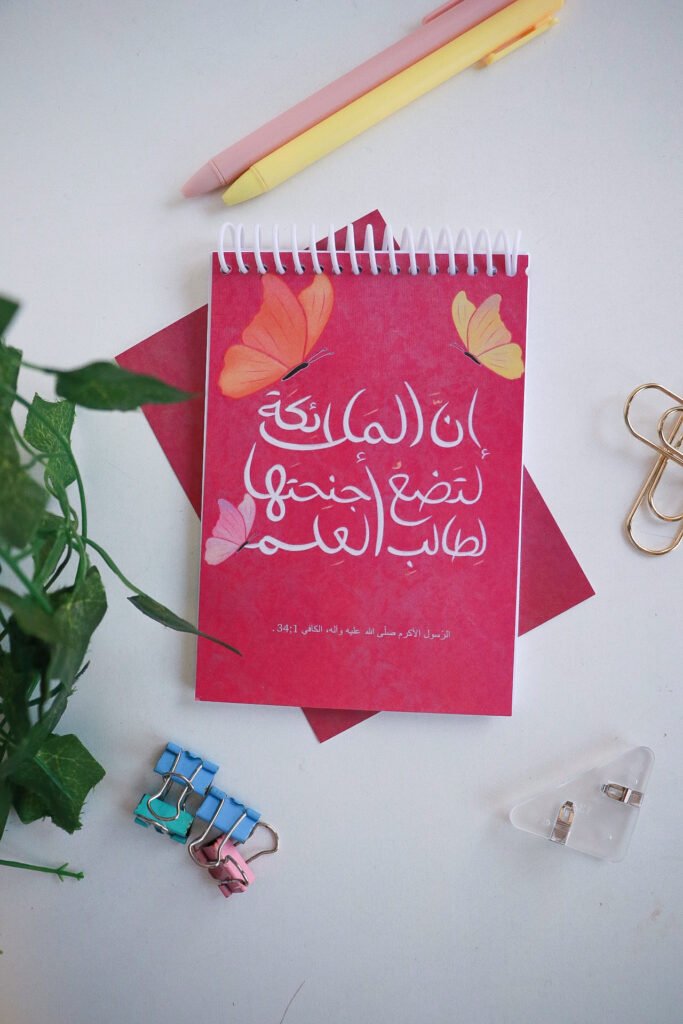 إنَّ الملَائكة
لتَضعُ أجنِحتَها
لِطالبِ العِلم
الرّسول الأكرم صلّى الله عليه وآله، الكافي 34:1 .